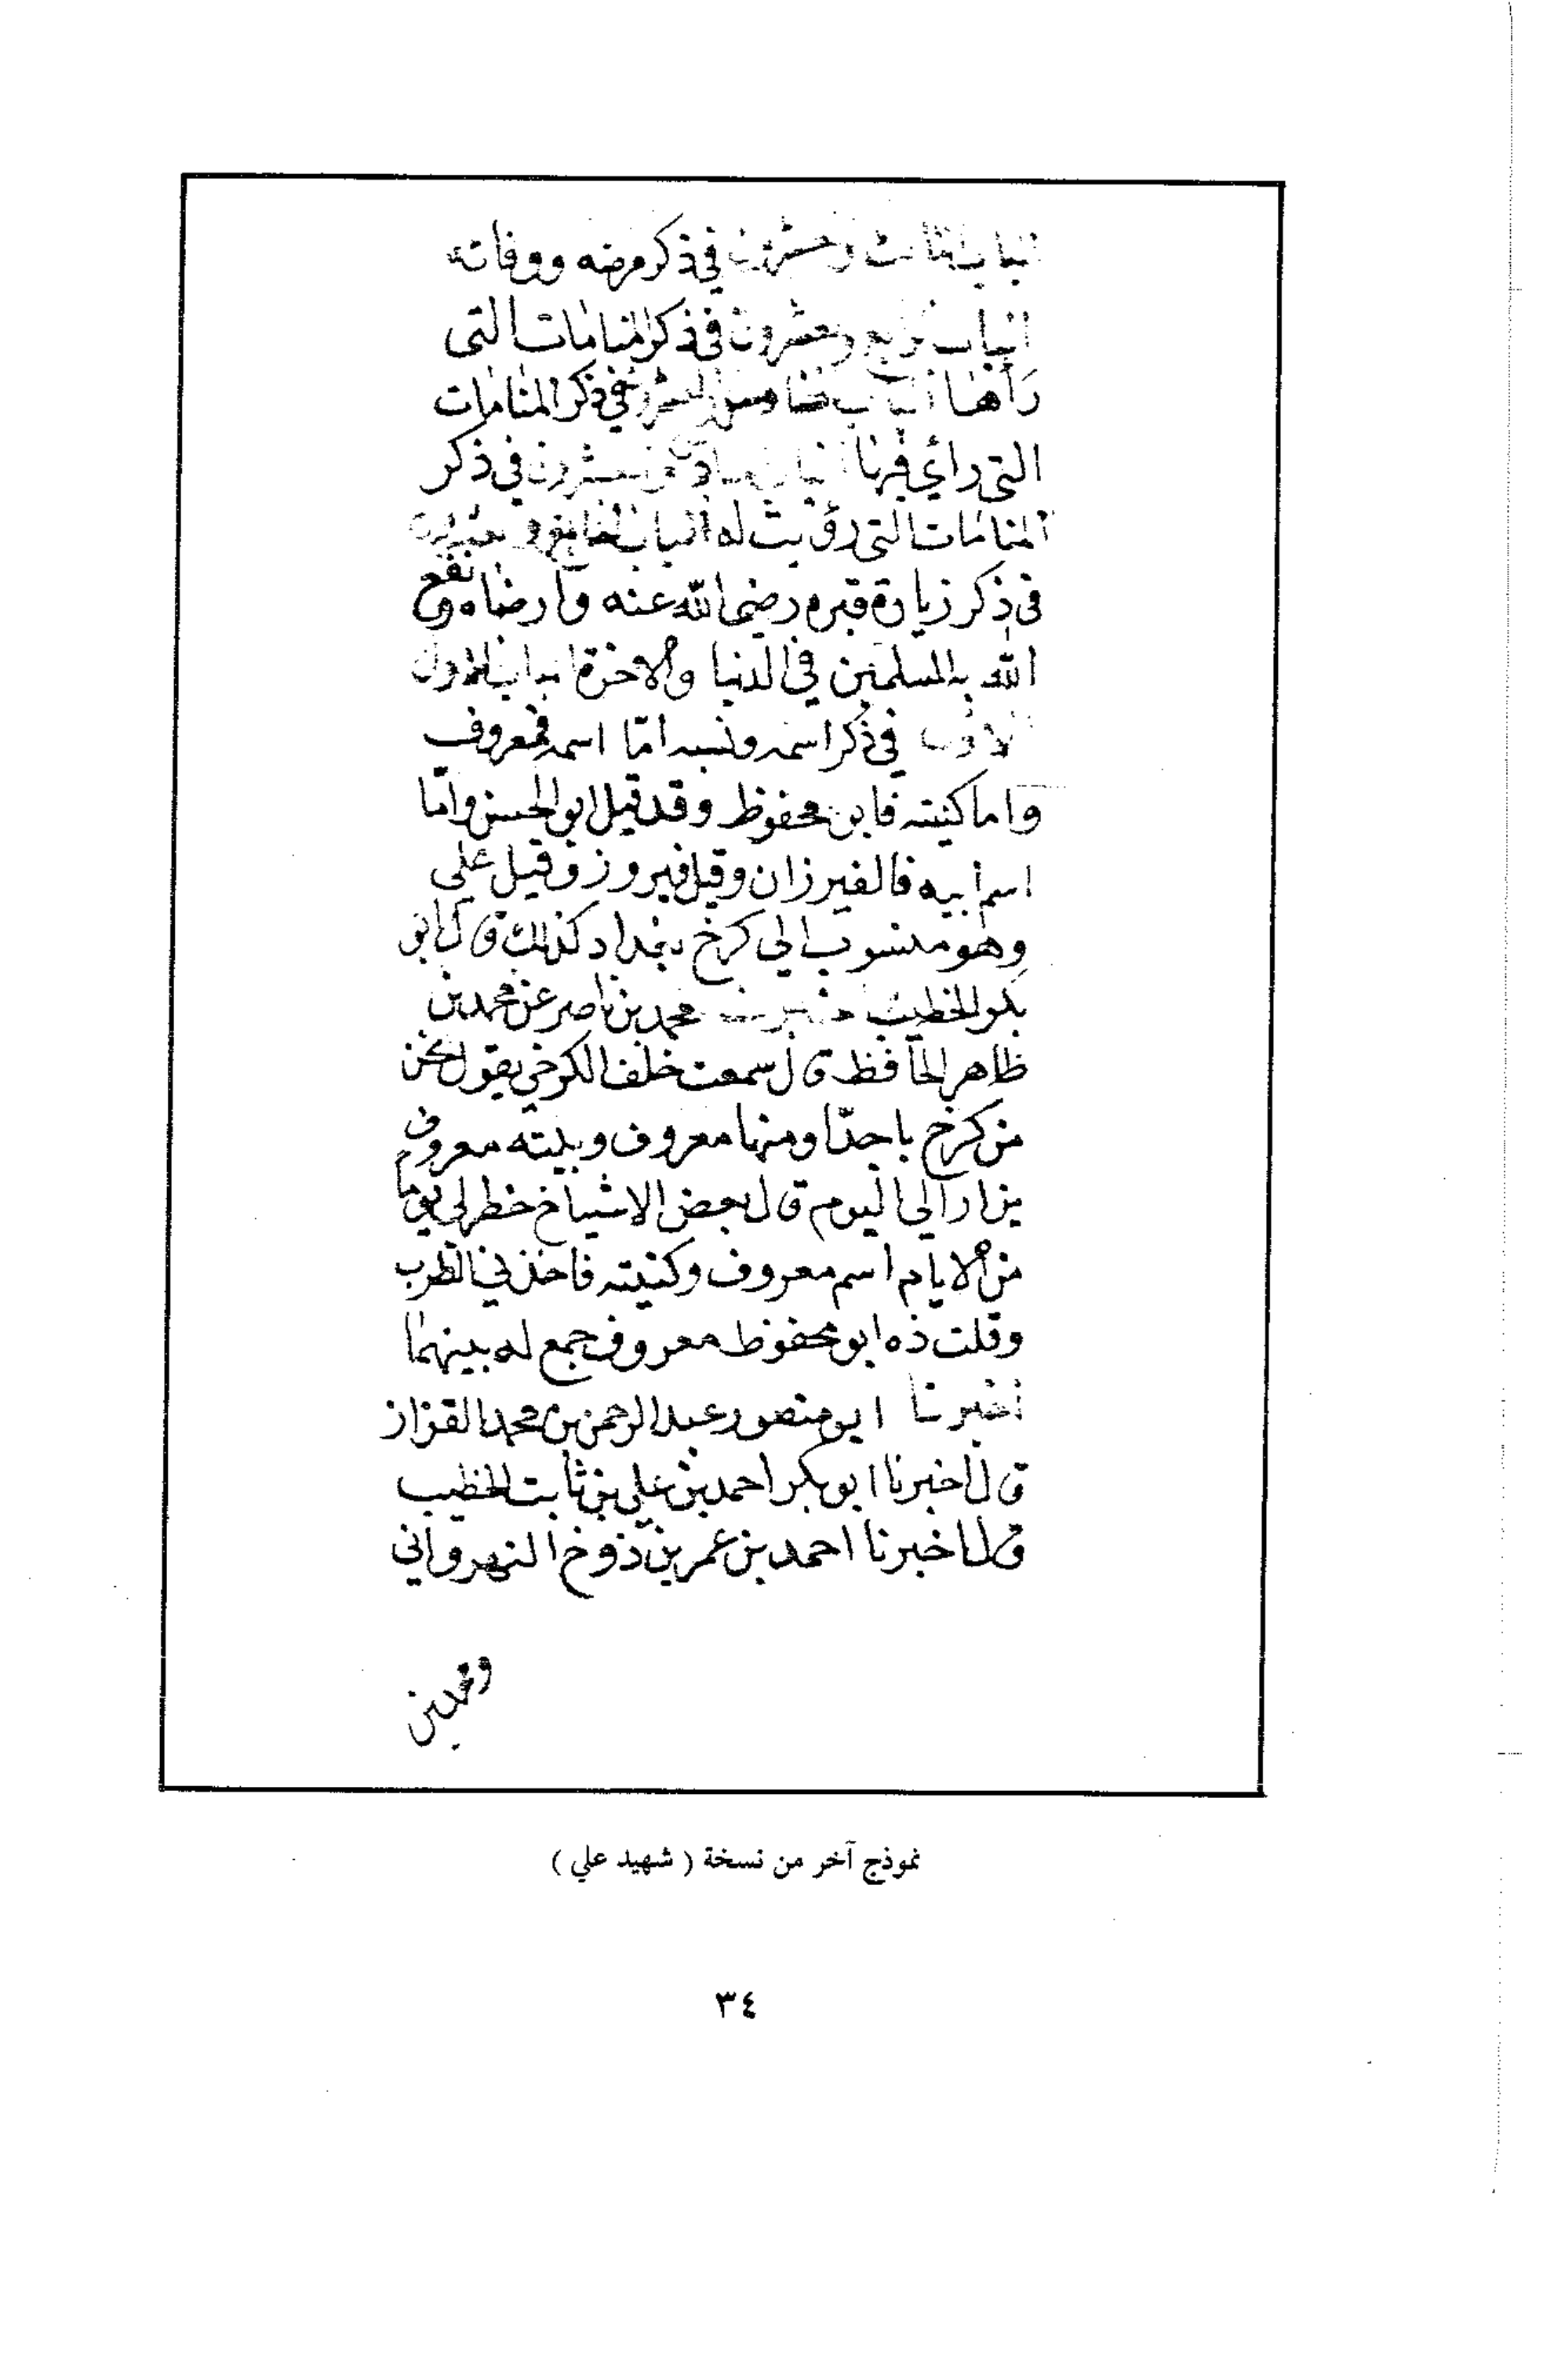 الباب الثالث وعشرون في ذكر مرضه ووفاته
الباب الرابع وعشرون في ذكر المنامات التي
رآها الباب الخامس والعشرون في ذكر المنامات
التي رأي فيها الباب السادس والعشرون في ذكر
المنامات التي رؤيت له الباب السابع وعشرون
في ذكر زيارة قبره رضى الله عنه وارضاه ونفع
الله به المسلمين في الدنيا والاخرة الباب الاول
في ذكر اسمه ونسبه امّا اسمه فمعروف
واما كنيته فابو محفوظ وقد قيل ابو الحسن وامّا
اسم ابيه فالفيرزان وقيل فيروز وقيل علي
وهو منسوب الى كرخ بغداد كذلك قال ابو
بكر الخطيب محمد بن ناصر عن محمد بن
طاهر الحافظ قال سمعت خلف الكرخي يقول نحن
من كرخ باجدّا ومنها معروف وبيته معروف
يزار الى اليوم قال بعض الاشياخ خطر لي يوما
من الايام اسم معروف وكنيته فاخذني الطرب
وقلت ذه ابو محفوظ معروف جمع له بينهما
اخبرنا ابو منصور عبد الرحمن بن محمد القزاز
قال اخبرنا ابو بكر احمد بن علي بن ثابت الخطيب
قال اخبرنا احمد بن عمر بن ذوخ النهرواني
ومحمد بن
نموذج آخر من نسخة ( شهيد علي )
٣٤